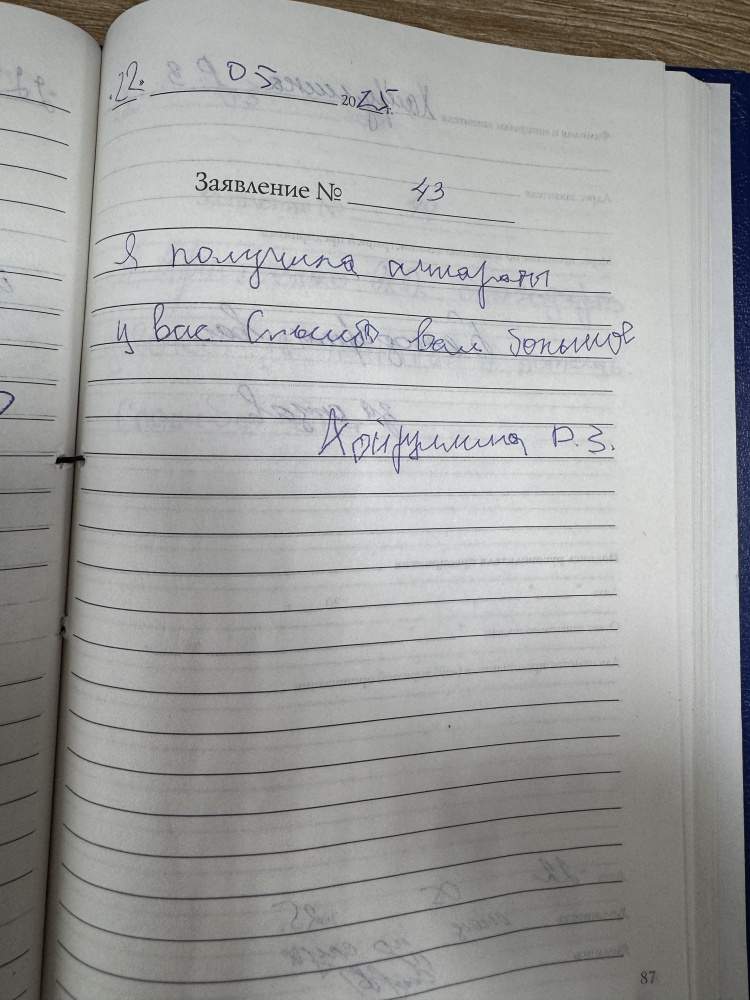 22. 05 2025 г.
Заявление № 43
Я получила аппараты
у вас Спасибо вам большое
Хайруллина Р.З.
87